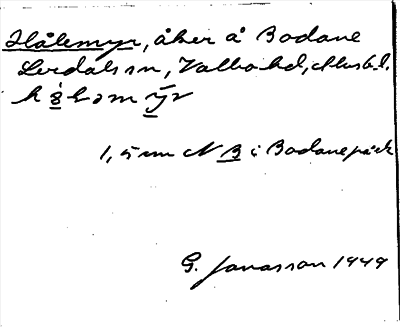 Hålemyr, åker å Bodane
Lerdals sn, Valbo hd, Älvsb.l.
1,5 mm N B i Bodane på ek
G. Jonasson 1949